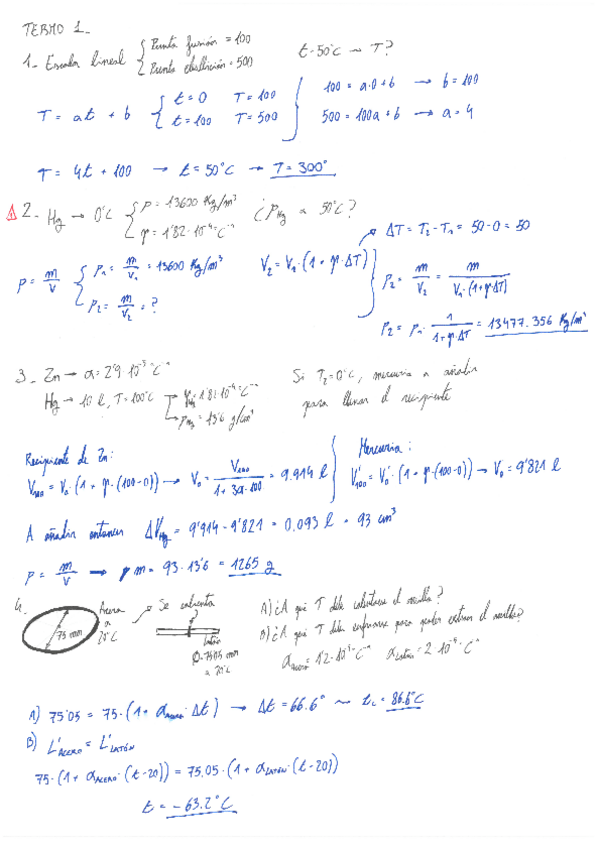 TERMO 1_
1_ Escala lineal { Punto fusión = 100 t = 50°C → T?
Punto ebullición = 500
T = at + b { t = 0 T = 100 100 = a·0 + b → b = 100
t = 100 T = 500 500 = 100a + b → a = 4
T = 4t + 100 → t = 50°C → T = 300°
2_ Hg → 0°C { ρ = 13600 Kg/m³ ¿ρHg a 50°C?
φ = 1'82·10⁻⁴ °C⁻¹
ΔT = T₂ - T₁ = 50 - 0 = 50
ρ = m/V { ρ₁ = m/V₁ = 13600 Kg/m³ V₂ = V₁·(1 + φ·ΔT)
ρ₂ = m/V₂ = ? ρ₂ = m/V₂ = m/V₁·(1+φ·ΔT)
ρ₂ = ρ₁· 1/1+φ·ΔT = 13477.356 Kg/m³
3_ Zn → α = 2'9 10⁻⁵ °C⁻¹ Si T₂ = 0°C, mercurio a añadir
Hg → 10 l, T = 100°C 1'82·10⁻⁴ °C⁻¹ para llenar el recipiente
ρHg = 13'6 g/cm³
Recipiente de Zn: Mercurio:
V₁₀₀ = V₀·(1 + φ·(100-0)) → V₀ = V₁₀₀/1 + 3α·100 = 9.914 l V'₁₀₀ = V₀'·(1 + φ·(100-0)) → V₀ = 9'821 l
A añadir entonces ΔVHg = 9'914 - 9'821 = 0.093 l = 93 cm³
ρ = m/V → m = 93·13'6 = 1265 g
4_ 75 mm Acero a 20°C Se calienta
Latón Ø = 75'05 mm a 20°C
A) ¿A qué T debe calentarse el anillo?
B) ¿A qué T debe enfriarse para poder extraer el anillo?
αacero = 1'2·10⁻⁵ °C⁻¹ αlatón = 2 10⁻⁵ °C⁻¹
A) 75'05 = 75·(1 + αacero·Δt) → Δt = 66.6° → 86.6°C
B) L'ACERO = L'LATÓN
75·(1 + αACERO·(t-20)) = 75,05·(1 + αLATÓN·(t-20))
t = -63.2°C